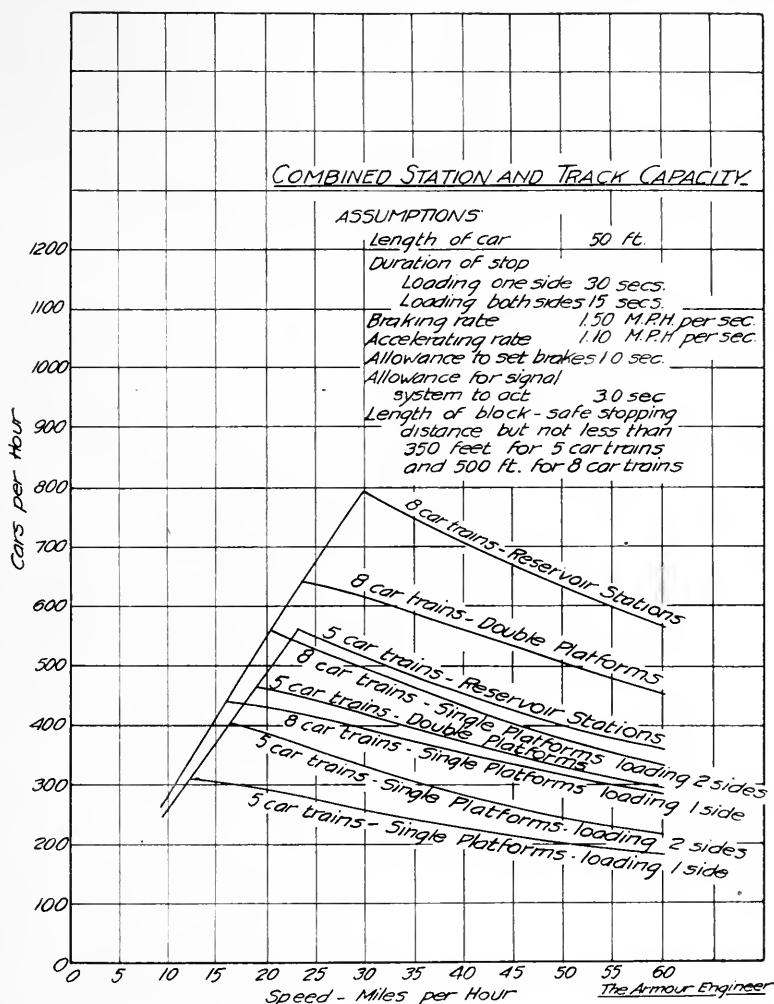 COMBINED STATION AND TRACK CAPACITY.
ASSUMPTIONS
Length of car 50 ft.
Duration of stop
Loading one side 30 secs.
Loading both sides 15 secs.
Braking rate 1.50 M.P.H. per sec.
Accelerating rate 1.10 M.P.H per sec.
Allowance to set brakes 1.0 sec.
Allowance for signal
system to act 3.0 sec
Length of block - safe stopping
distance but not less than
350 feet for 5 car trains
and 500 ft. for 8 car trains
1200
1100
1000
900
800
700
600
500
400
300
200
100
0
Cars per Hour
8 car trains - Reservoir Stations
8 car trains - Double Platforms
5 car trains - Reservoir Stations
8 car trains - Single Platforms loading 2 sides
5 car trains - Double Platforms
8 car trains - Single Platforms loading 1 side
5 car trains - Single Platforms - loading 2 sides
5 car trains - Single Platforms - loading 1 side
0 5 10 15 20 25 30 35 40 45 50 55 60
Speed - Miles per Hour
The Armour Engineer